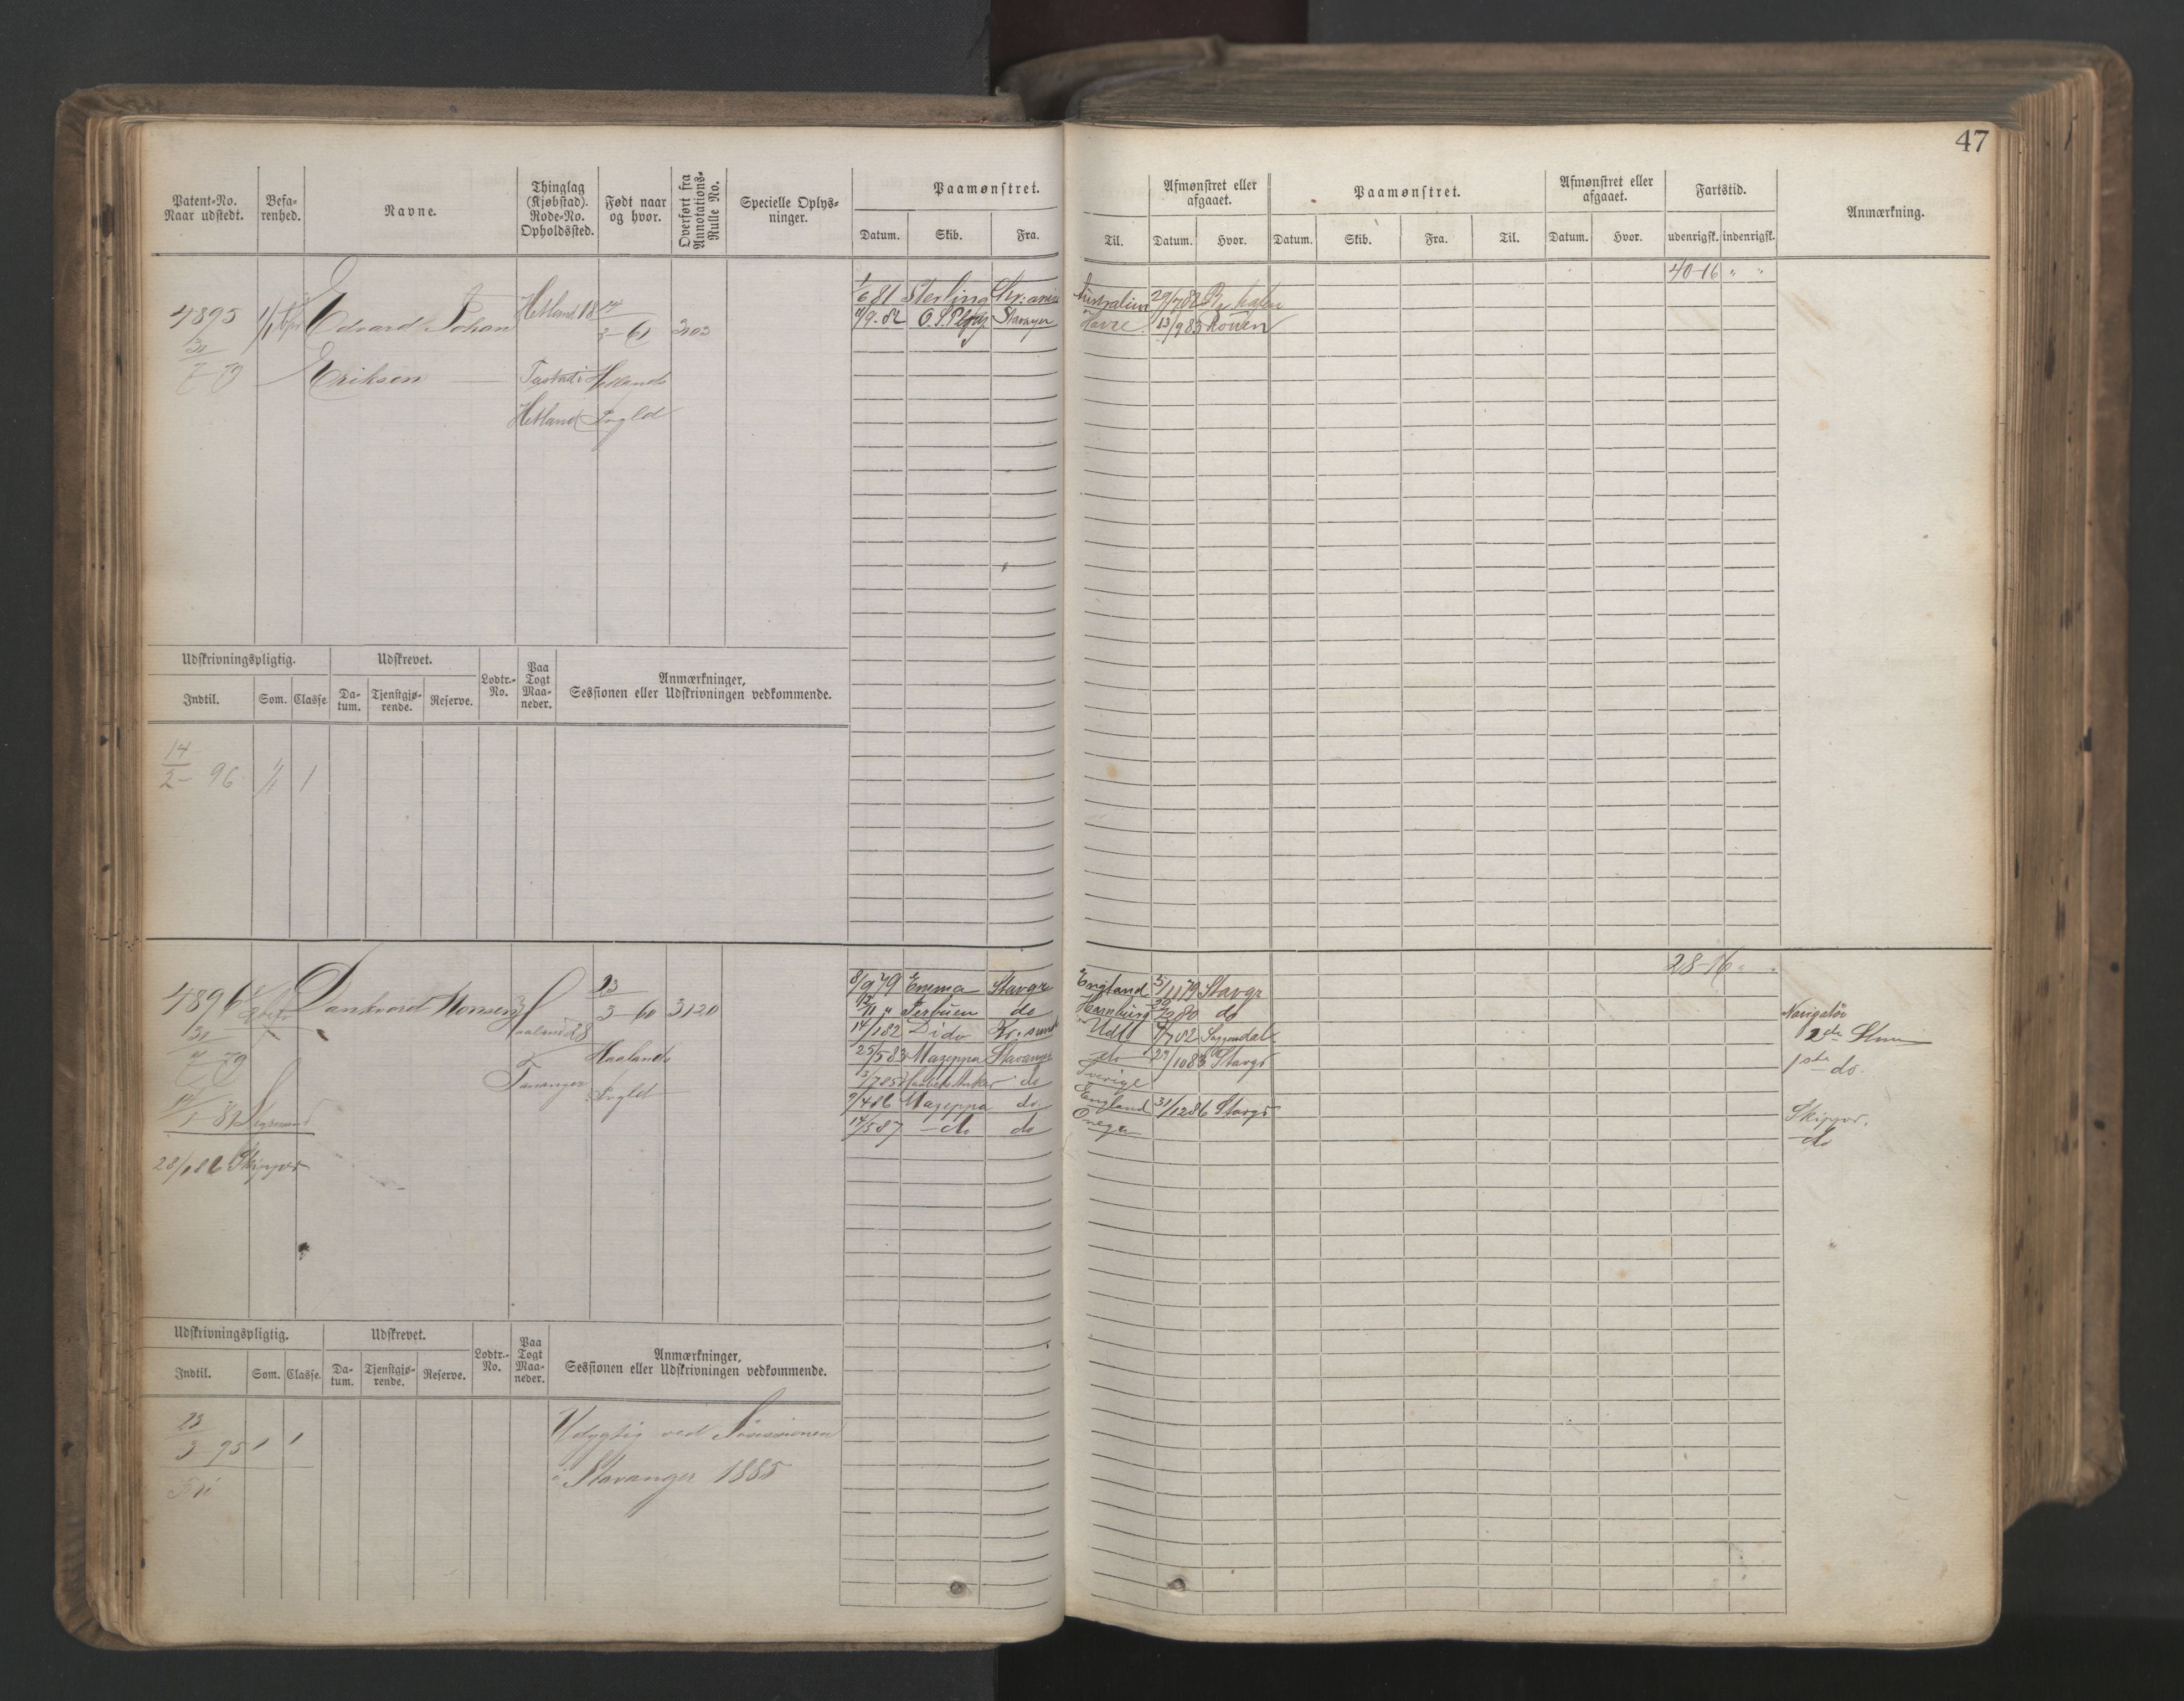 47
Patent-No. Naar udstedt. Befarenhed. Navne. Thinglag (Kjøbstad). Rode-No. Opholdssted. Født naar og hvor. Overført fra Annotations-Rulle No. Specielle Oplysninger. Paamønstret. Afmønstret eller afgaaet. Paamønstret. Afmønstret eller afgaaet. Fartstid. Anmærkning.
Datum. Skib. Fra. Til. Datum. Hvor. Datum. Skib. Fra. Til. Datum. Hvor. udenrigsk. indenrigsk.
40-16 " "
1/6 81 Sterling Australien 29/7 82
4895 Edvard Johan Hetland 18 14/2-61 9. 82 Stavgr Havre 13/9 83 Rouen
31/7-79 Eriksen Hetland
Hetland Sogld
Udskrivningspligtig. Udskrevet. Lodtr.-No. Paa Togt Maaneder. Anmærkninger, Sessionen eller Udskrivningen vedkommende.
Indtil. Som. Classe. Datum. Tjenstgjørende. Reserve.
14/2- 96 1/1 1
28-16
4896 Dankvard Monsen Haaland 28 23/3-60 3120 8/9 79 Emma Stavgr England 5/11 79 Stavgr
31/7 79 do Hamburg 80 do Navigatør
14/1 82 Dido Kr:sund Udl 82 Soggendal 2de Strm
Tananger Haalands Sogld 25/5 83 Mazeppa Stavanger do 29/10 85 Stavgr 1ste do.
85 do Sverige
14/1 82 Styrmand 9/4 86 Mazeppa do England 31/12 86 Stavgr Skipper.
14/5 87 do do Onega do
28/1 86 Skipper
Udskrivningspligtig. Udskrevet. Lodtr.-No. Paa Togt Maaneder. Anmærkninger, Sessionen eller Udskrivningen vedkommende.
Indtil. Som. Classe. Datum. Tjenstgjørende. Reserve.
23/3-95 1 1 Udygtig ved Sessionen
Fri i Stavanger 1885